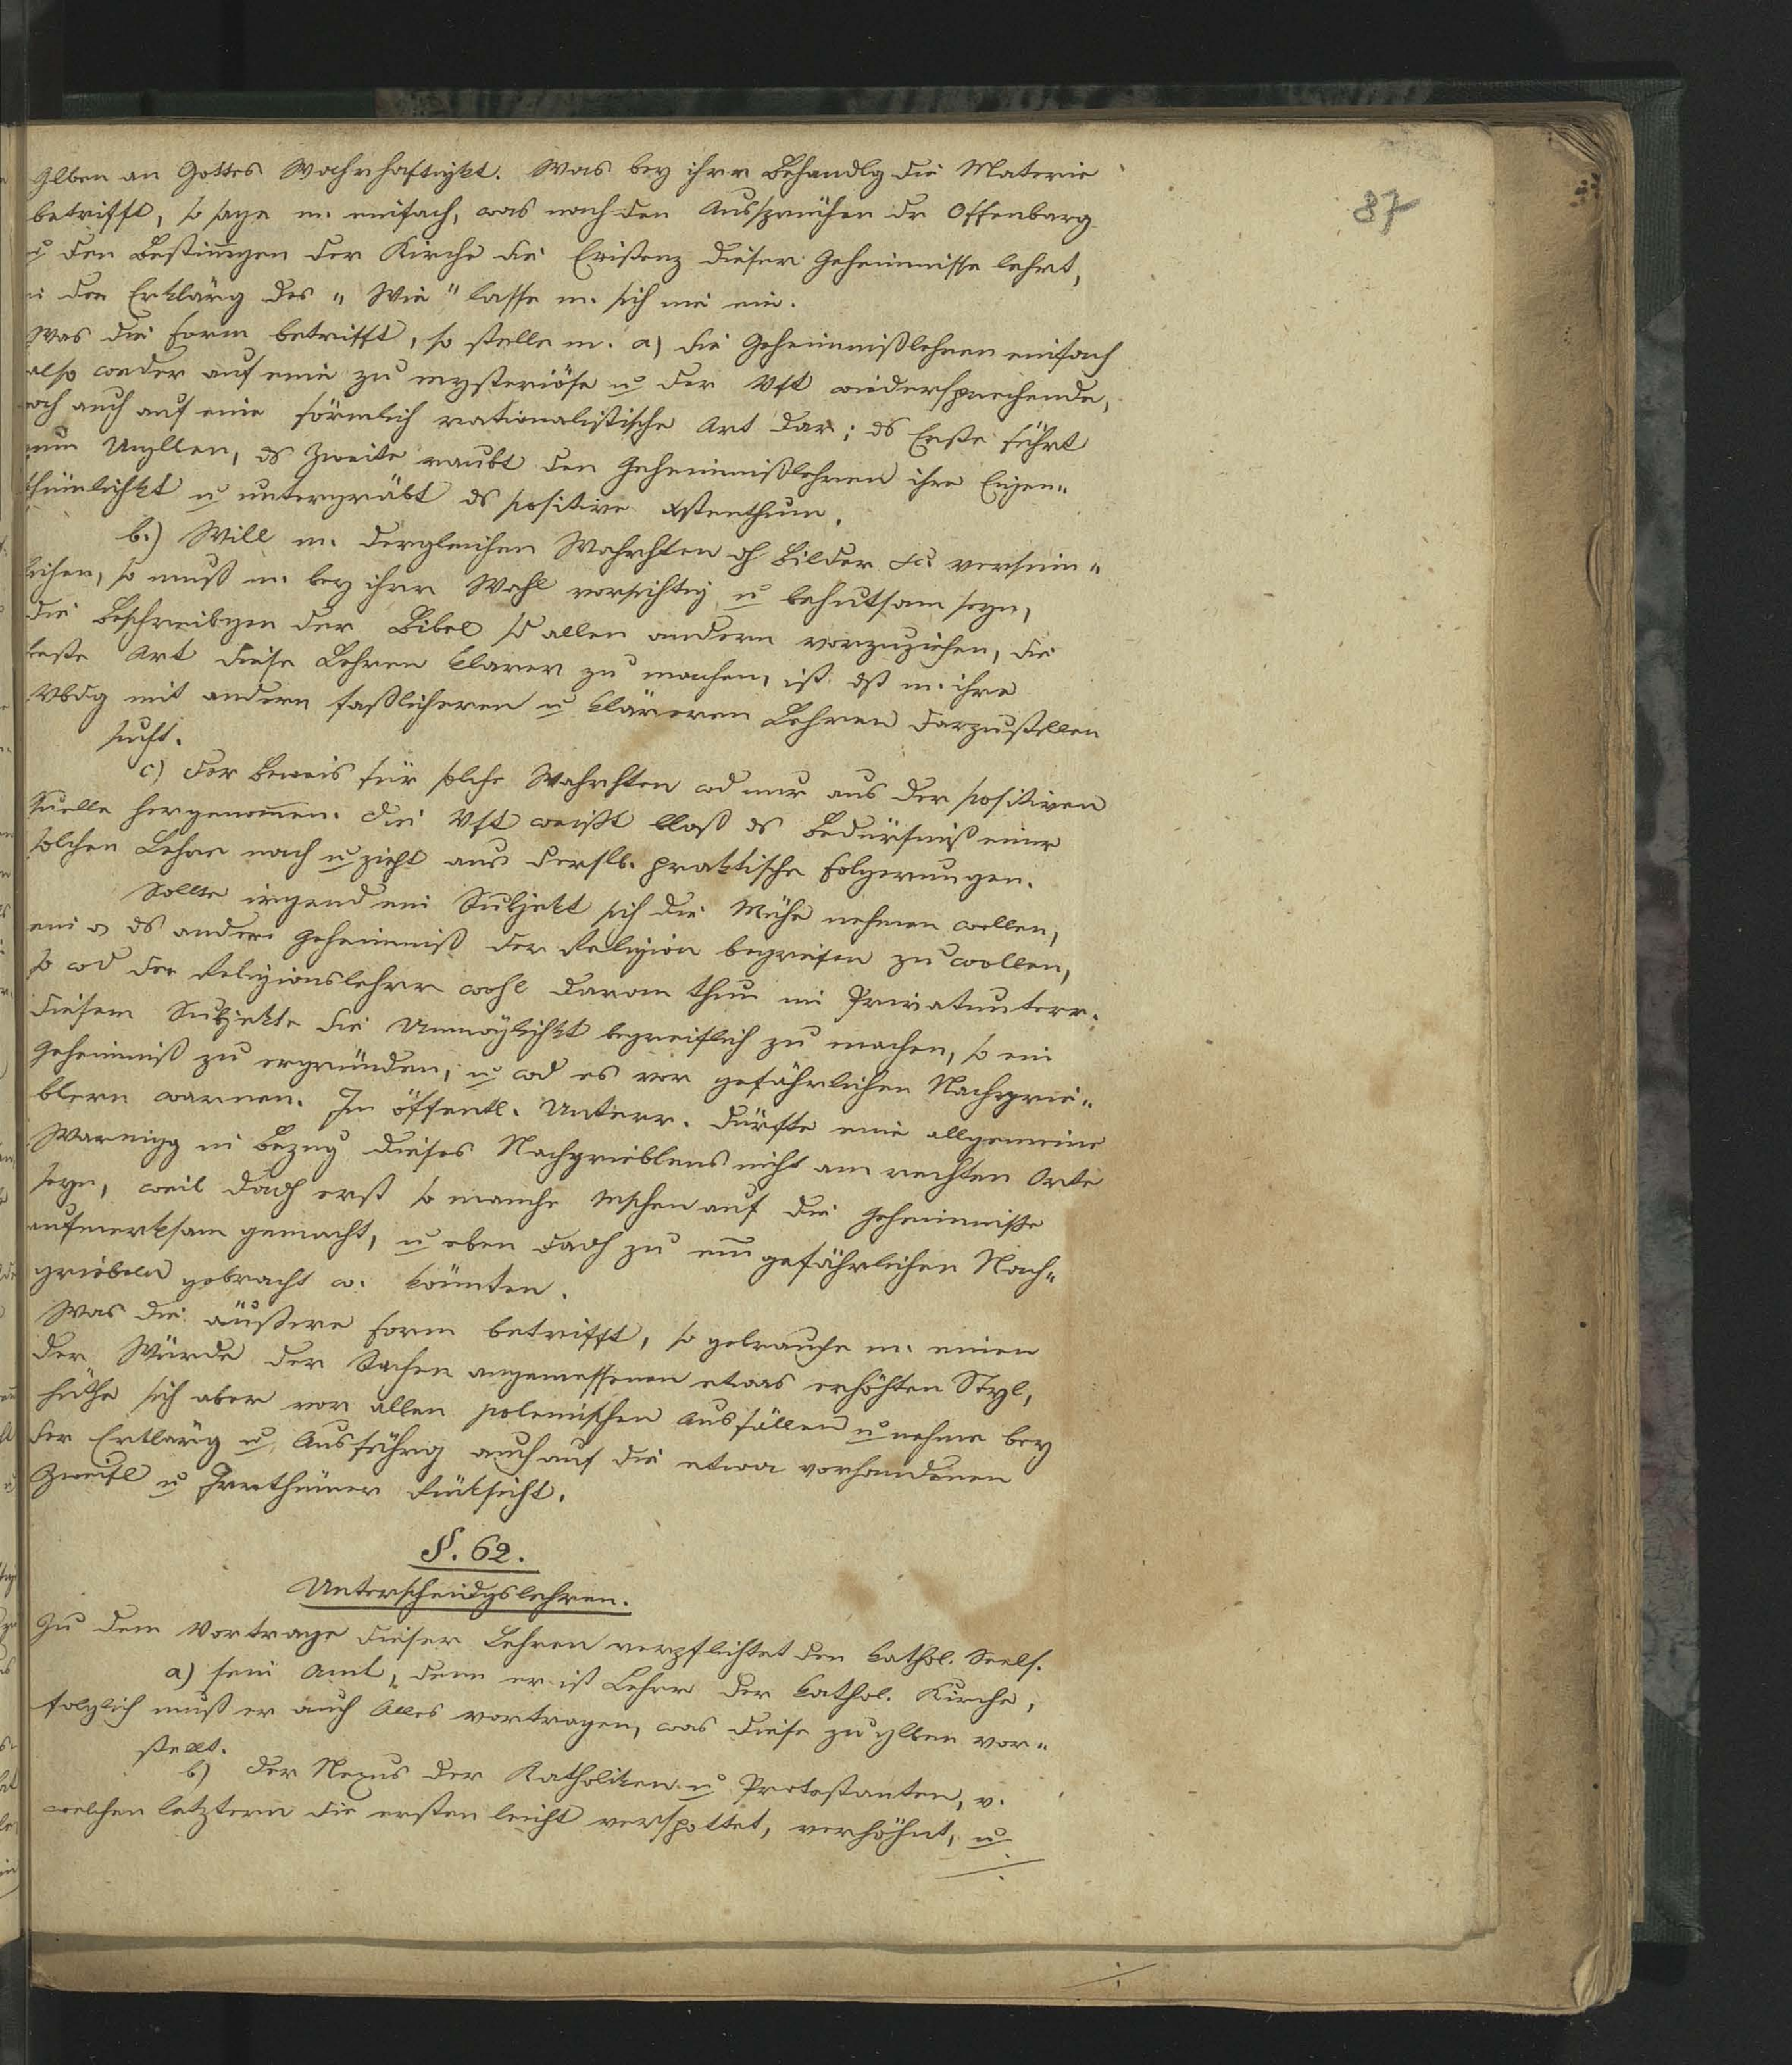 87
Glben an Gottes Wahrhaftigkt. Was bey ihrer Behandlg die Materie
betrifft, so sage m. einfach, was nach den Aussprüchen dr Offenbarg
u den Bestim̄gen der Kirche die Existenz dieser Geheimnisse lehrt,
in der Erklärg des „Wie" lasse m. sich nie ein.
Was die Form betrifft, so stelle m. a) die Geheimnißlehren einfach
also weder auf eine zu mysteriöse u der Vft wiedersprechende,
noch auch auf eine förmlich rationalistische Art dar; ds Erste führt
zum Unglben, ds Zweite raubt den Geheimnißlehren ihre Eigen„
thümlichkt u untergräbt ds positive Xstenthum.
b.) Will m. dergleichen Wahrhten dh Bilder &c. versinn„
lichen, so muß m. bey ihrer Wahl vorsichtig u behutsam seyn,
die Beschreibgen der Bibel sd allen andern vorzuziehen, die
beste Art diese Lehren klarer zu machen, ist dß m. ihre
Vbdg mit andern faßlicheren u kläreren Lehren darzustellen
sucht.
c) Der Beweis für solche Wahrhten wd nur aus der positiven
Quelle hergenom̄en. Die Vft weißt bloß ds Bedürfniß einer
solchen Lehre nach u zieht aus derslb. praktische Folgerungen.
Sollte irgend ein Subjekt sich die Mühe nehmen wollen,
ein o ds andere Geheimniß der Religion begreifen zu wollen,
so wd der Religionslehrer wohl daran thun im Privatunterr.
diesem Subjekte die Unmöglichkt begreiflich zu machen, so ein
Geheimniß zu ergründen, u wd es vor gefährlichen Nachgrü„
blern warnen. Im öffentl. Unterr. dürfte eine allgemeine
Warnigg in Bezug dieses Nachgrieblens nicht am rechten Orte
seyn, weil dadh erst so manche Mschen auf die Geheimniße
aufmerksam gemacht, u eben dadh zu eim̄ gefährlichen Nach„
griebeln gebracht w. könnten.
Was die äußere Form betrifft, so gebrauche m. einen
der Würde der Sachen angemessenen etwas erhöhten Styl,
hüthe sich aber vor allen polemischen Ausfällen u nehme bey
der Erklärg u Ausführg auch auf die etwa vorhandenen
Zweifl u Irrthümer Rüksicht.
§. 62.
Unterscheidgslehren.
Zu dem Vortrage dieser Lehren verpflichtet den kathol. Seels.
a) sein Amt, denn er ist Lehrer der kathol. Kirche,
folglich muß er auch Alles vortragen, was diese zu glben vor„
stellt.
b) Der Nexus der Katholiken u Protestanten, v.
welchen letztern die ersten leicht verspottet, verhöhnt, u